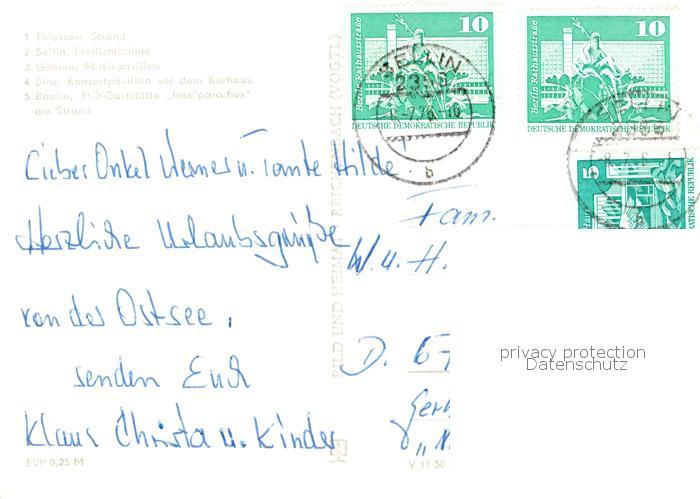 1 Thiessow, Strand
2 Sellin, Freilichtbühne
3 Göhren, Musikpavillon
4 Binz, Konzertpavillon vor dem Kurhaus
5 Baabe, HO-Gaststätte „Inselparadies"
am Strand
Lieber Onkel Werner u. Tante Hilde
Herzliche Urlaubsgrüße
von der Ostsee,
senden Euch
Klaus Christa u. Kinder
EVP 0,25 M
BILD UND HEIMAT REICHENBACH (VOGTL)
V 11 50
10
Berlin·Rathausstraße
DEUTSCHE DEMOKRATISCHE REPUBLIK
10
Berlin·Rathausstraße
DEUTSCHE DEMOKRATISCHE REPUBLIK
5
SELLIN
b
Fam.
W. u. H.
D.
privacy protection
Datenschutz